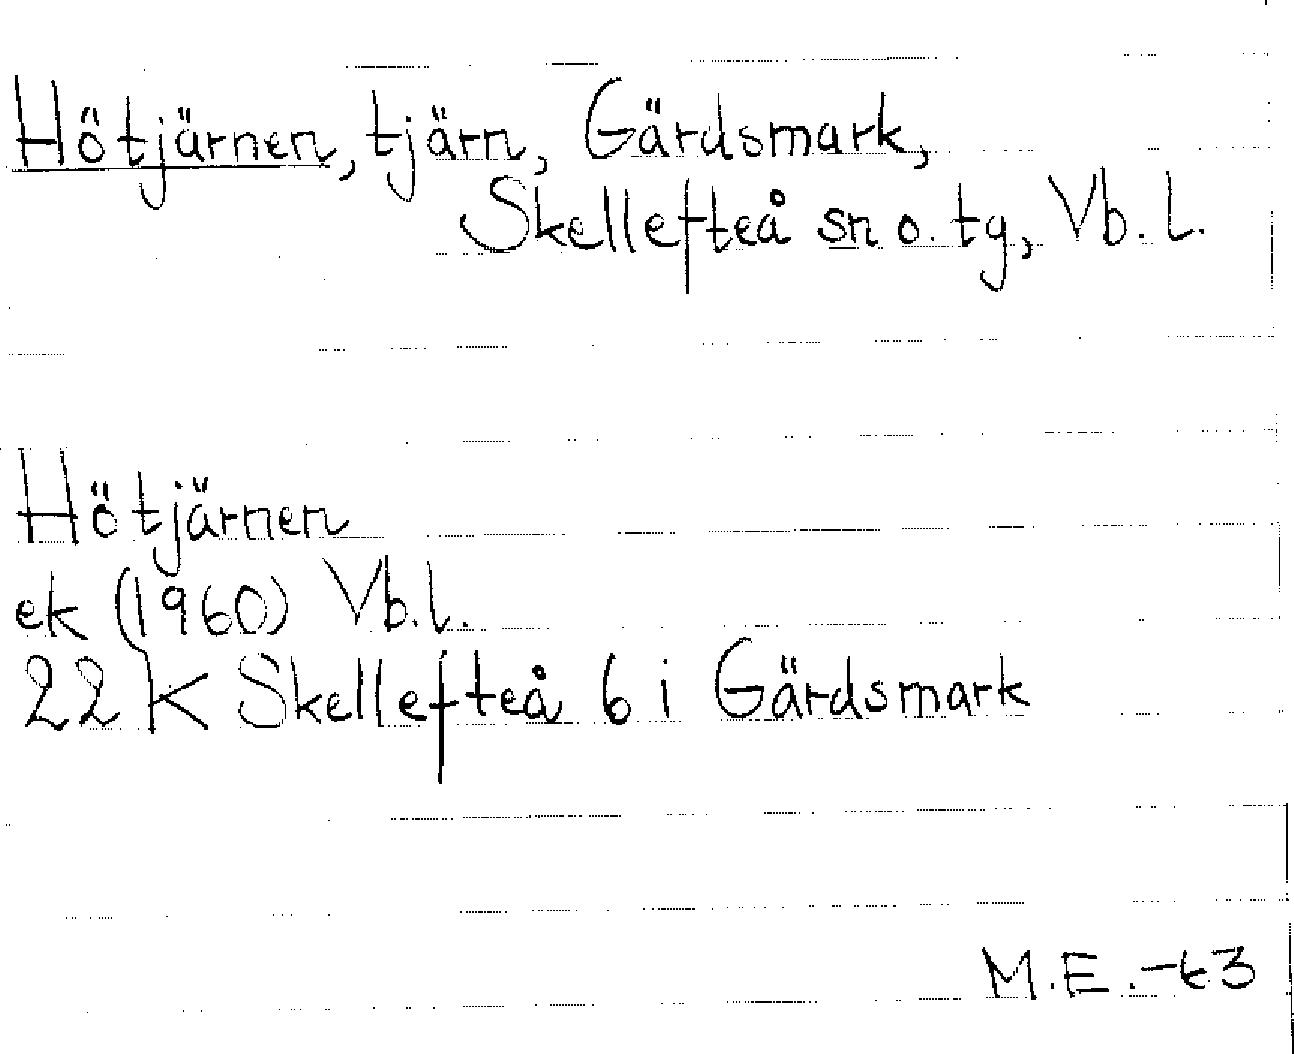 Hötjärnen, tjärn, Gärdsmark,
Skellefteå sn o. tg, Vb. l.
Hötjärnen
ek (1960) Vb.l.
22 K Skellefteå 6 i Gärdsmark
M.E.